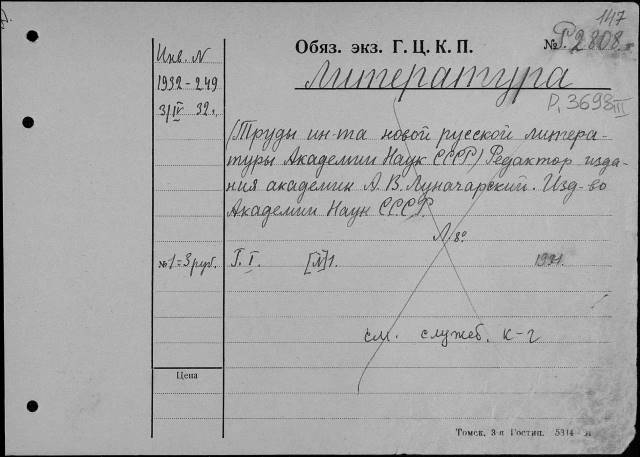 147
Обяз. экз. Г. Ц. К. П.
№ Р2808
Инв. N
1932-249
3/IV 32 г.
Литература
Р. 3698 III
(Труды ин-та новой русской литера-
туры Академии Наук СССР) Редактор изда-
ния академик А. В. Луначарский. Изд-во
Академии Наук СССР.
Л. 8°
№1=3 руб.
Г. I. [№]1. 1931.
см. служеб. к-г
Цена
Томск, 3-я Гостип. 5314